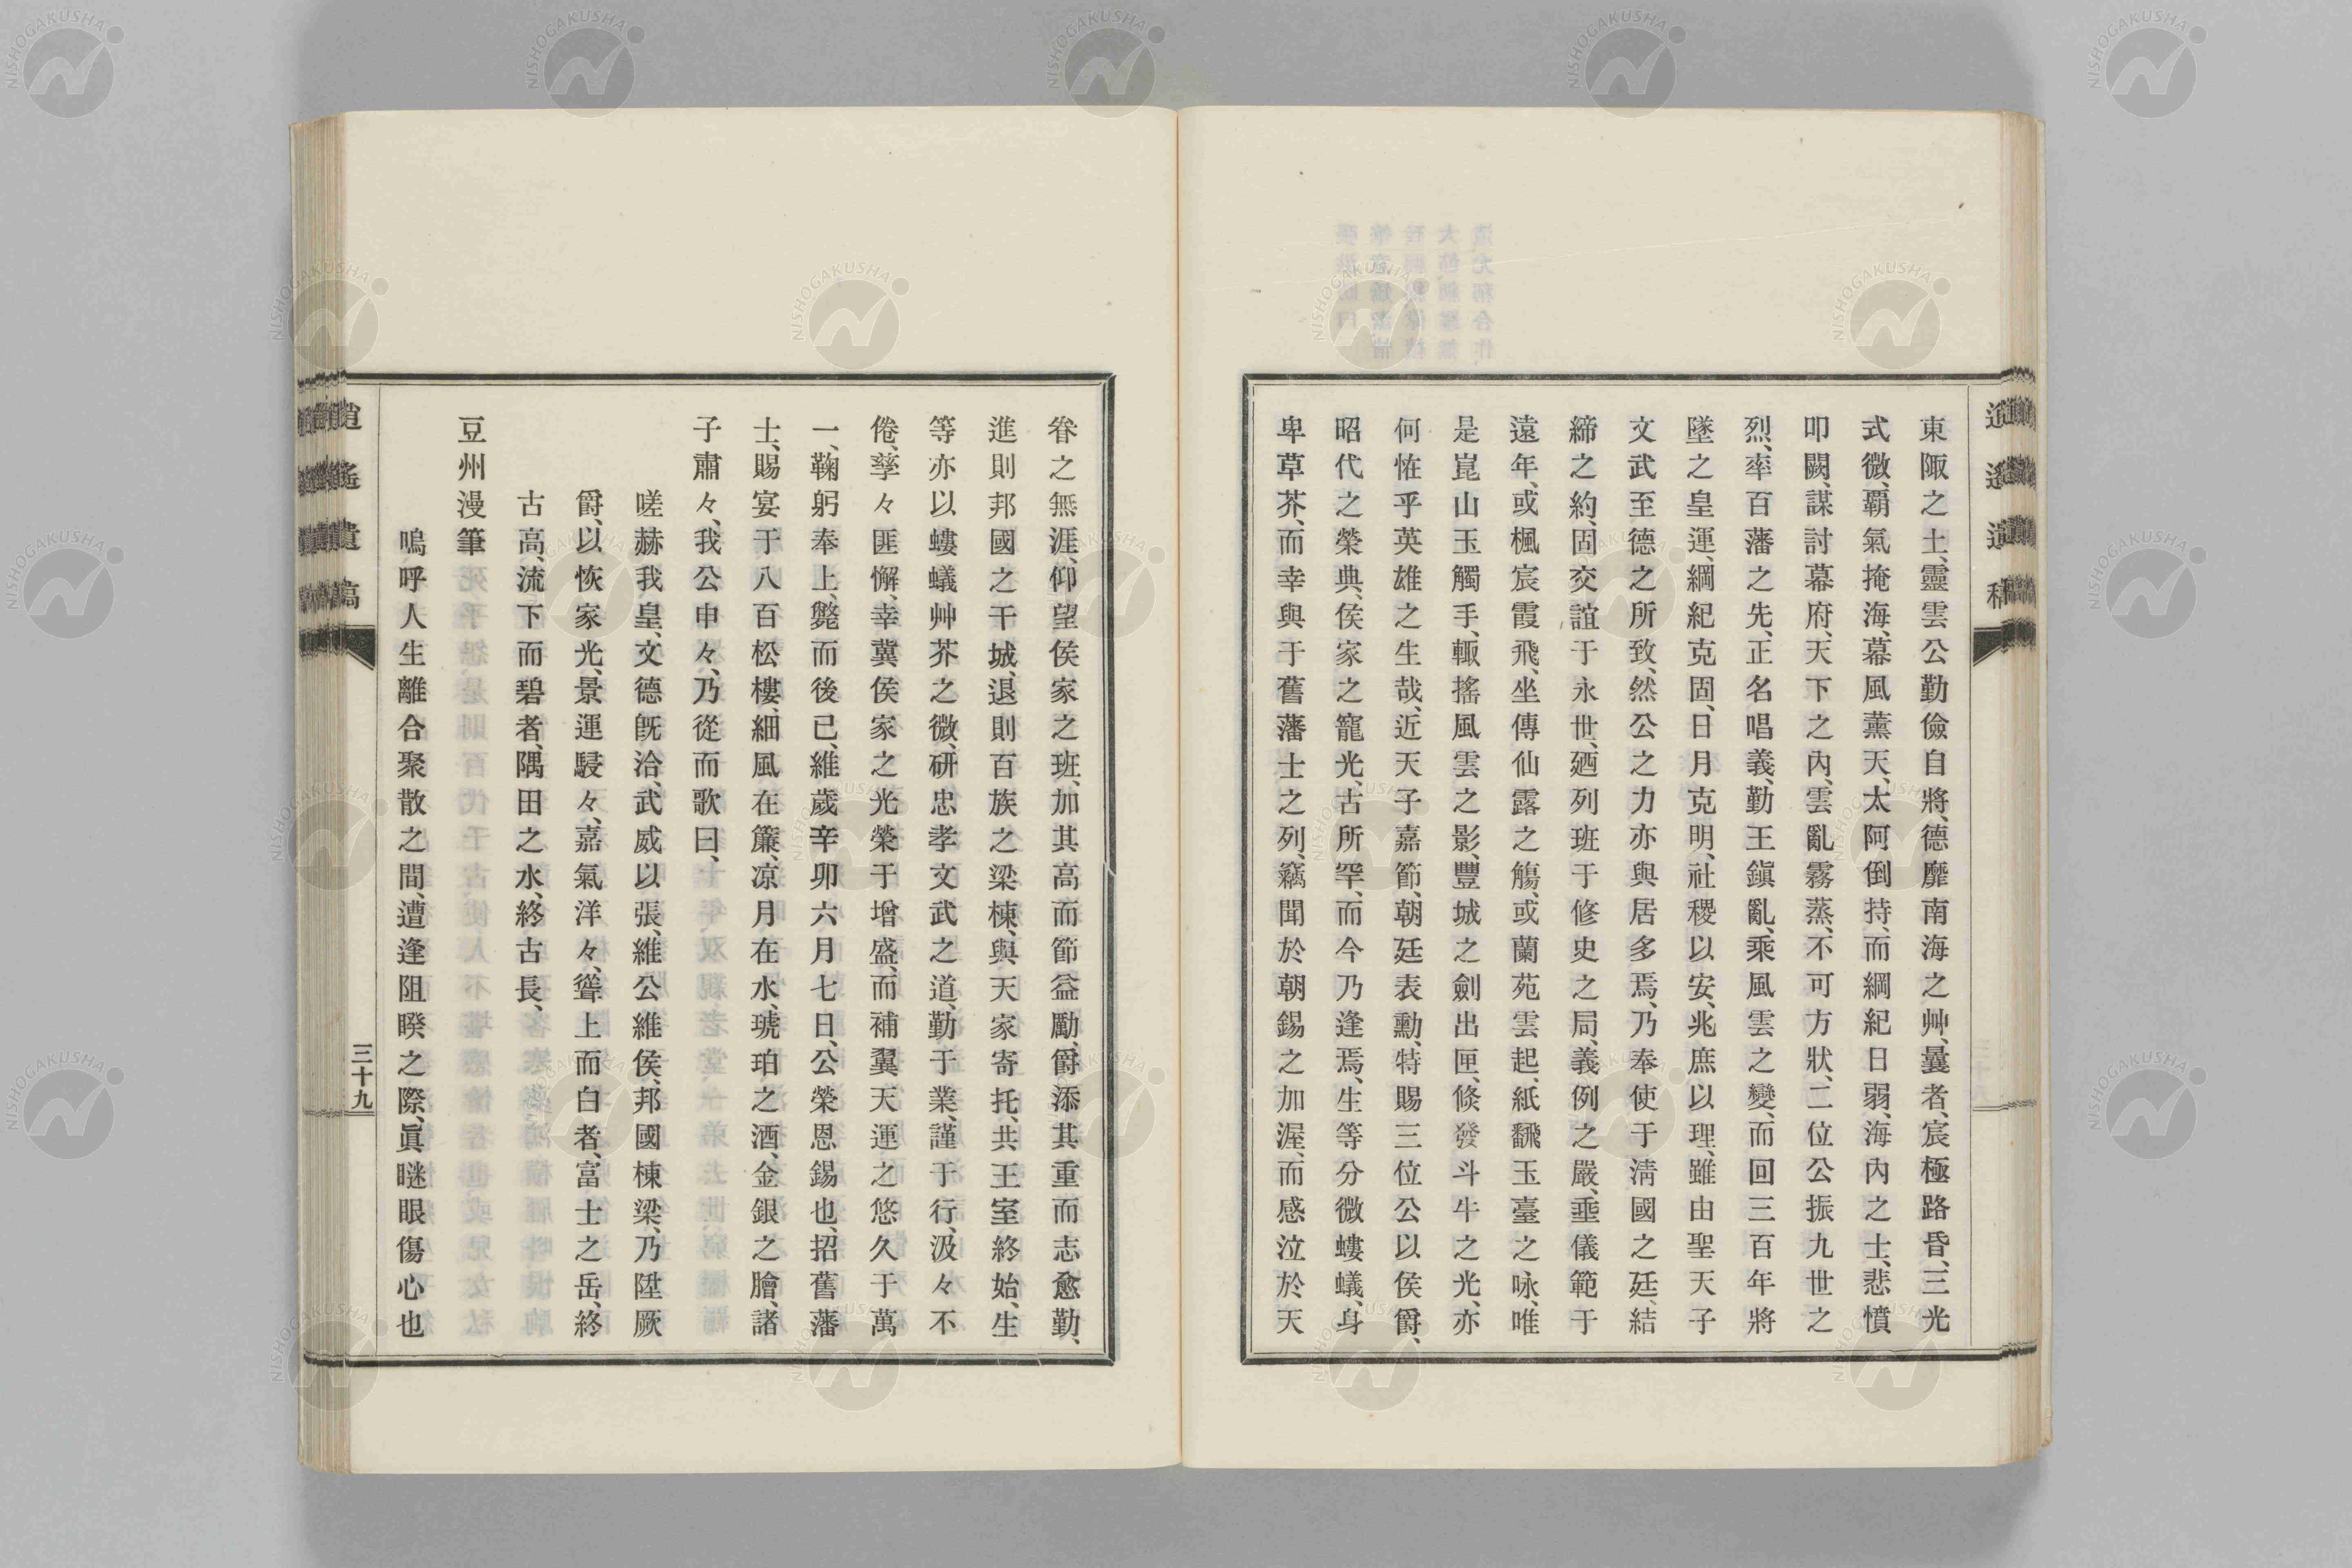 東陬之土、靈雲公勤儉自將、德靡南海之艸、曩者、宸極路昏、三光
式微、覇氣掩海、幕風薰天、太阿倒持、而綱紀日弱、海內之士、悲憤
叩闕、謀討幕府、天下之內、雲亂霧蒸、不可方狀、二位公振九世之
烈、率百藩之先、正名唱義、勤王鎭亂、乘風雲之變、而回三百年將
墜之皇運、綱紀克固、日月克明、社稷以安、兆庶以理、雖由聖天子
文武至德之所致、然公之力亦與居多焉、乃奉使于淸國之廷、結
締之約、固交誼于永世、廼列班于修史之局、義例之嚴、垂儀範于
遠年、或楓宸霞飛、坐傳仙露之觴、或蘭苑雲起、紙飜玉臺之咏、唯
是崑山玉觸手、輙搖風雲之影、豐城之劍出匣、倐發斗牛之光、亦
何恠乎英雄之生哉、近天子嘉節、朝廷表勳、特賜三位公以侯爵、
昭代之榮典、侯家之寵光、古所罕、而今乃逢焉、生等分微螻蟻、身
卑草芥、而幸與于舊藩士之列、竊聞於朝錫之加渥、而感泣於天
眷之無涯、仰望侯家之班、加其高而節益勵、爵添其重而志愈勤、
進則邦國之干城、退則百族之梁棟、與天家寄托、共王室終始、生
等亦以螻蟻艸芥之微、研忠孝文武之道、勤于業、謹于行、汲々不
倦、孳々匪懈、幸冀侯家之光榮于增盛、而補翼天運之悠久于萬
一、鞠躬奉上、斃而後已、維歲辛卯六月七日、公榮恩錫也、招舊藩
士、賜宴于八百松樓、細風在簾、凉月在水、琥珀之酒、金銀之膾、諸
子肅々、我公申々、乃從而歌曰、
嗟赫我皇、文德既洽、武威以張、維公維侯、邦國棟梁、乃陞厥
爵、以恢家光、景運駸々、嘉氣洋々、聳上而白者、富士之岳、終
古高、流下而碧者、隅田之水、終古長、
豆州漫筆
嗚呼人生離合聚散之間、遭逢阻睽之際、眞瞇眼傷心也
三十九